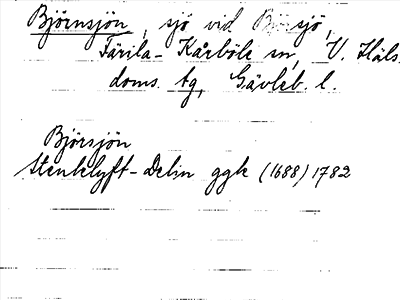 Björnsjön, sjö vid sjö,
Färila-Kårböle sn, V. Häls.
doms. tg, Gävleb. l.
Björsjön
Stenklyft-Delin ggk (1688) 1782